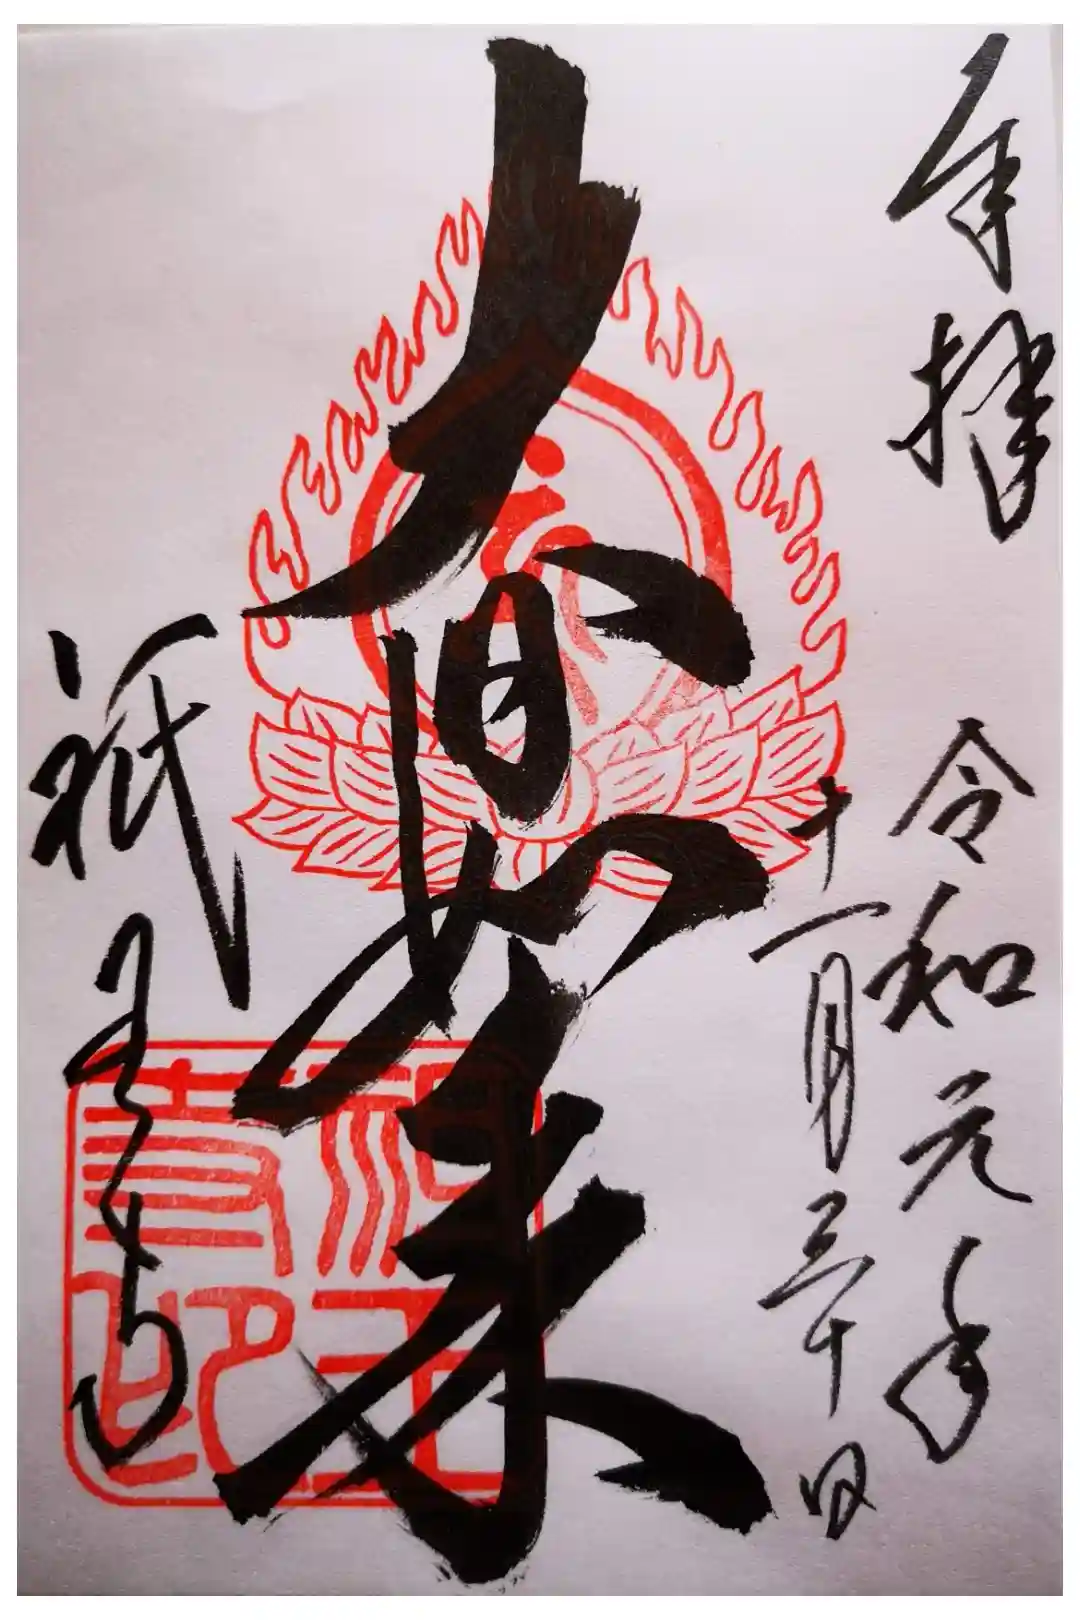 奉拝 令和元年
十一月三十日
大日如来
祇王寺
祇王
寺印